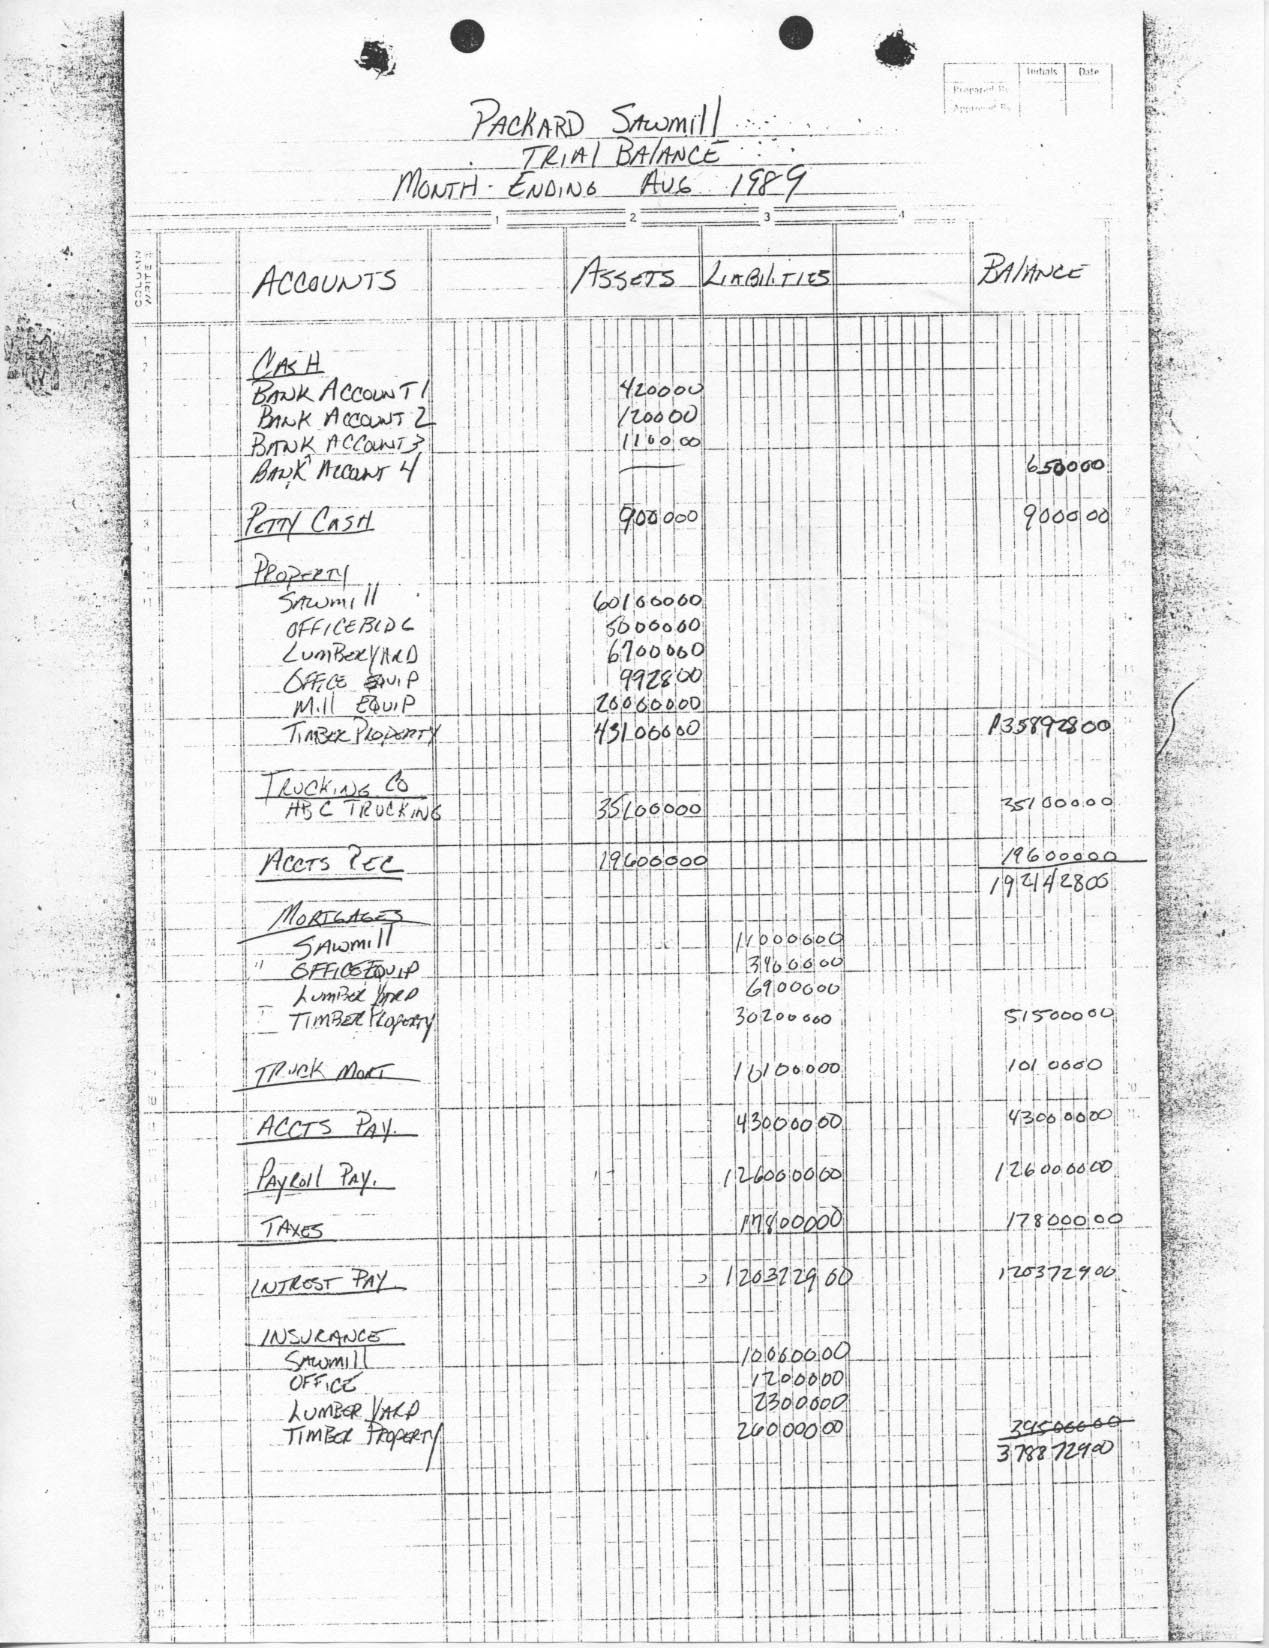 Initials Date
Prepared By
Approved By
PACKARD SAWMILL
TRIAL BALANCE
MONTH - ENDING AUG 1989
1 2 3 4
COLUMN WRITE
ACCOUNTS ASSETS LIABILITIES BALANCE
CASH
BANK ACCOUNT 1 420000
BANK ACCOUNT 2 120000
BANK ACCOUNT 3 110000
BANK ACCOUNT 4 — 650000
PETTY CASH 900000 900000
PROPERTY
SAWMILL 60100000
OFFICE BLDG 5000000
LUMBER YARD 6700000
OFFICE EQUIP 992800
MILL EQUIP 20000000
TIMBER PROPERTY 43100000 135892800
TRUCKING CO
ABC TRUCKING 35100000 35100000
ACCTS REC 19600000 19600000
192142800
MORTGAGES
SAWMILL 11000000
" OFFICE EQUIP 3400000
LUMBER YARD 6900000
TIMBER PROPERTY 30200000 51500000
TRUCK MORT 10100000 10100000
ACCTS PAY. 43000000 43000000
PAYROLL PAY. 126000000 126000000
TAXES 17800000 17800000
INTREST PAY 120372900 120372900
INSURANCE
SAWMILL 10000000
OFFICE 1200000
LUMBER YARD 2300000
TIMBER PROPERTY 26000000 39500000
378872900